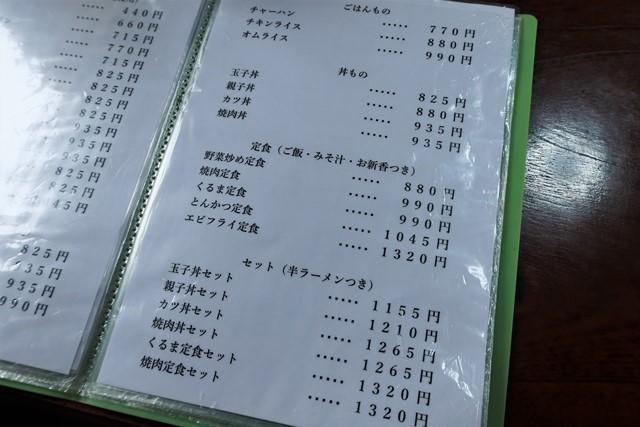 440円
660円
715円
770円
715円
825円
825円
825円
825円
935円
935円
935円
825円
825円
45円
825円
35円
935円
990円
ごはんもの
チャーハン ····· 770円
チキンライス ····· 880円
オムライス ····· 990円
丼もの
玉子丼 ····· 825円
親子丼 ····· 880円
カツ丼 ····· 935円
焼肉丼 ····· 935円
定食（ご飯・みそ汁・お新香つき）
野菜炒め定食 ····· 880円
焼肉定食 ····· 990円
くるま定食 ····· 990円
とんかつ定食 ····· 1045円
エビフライ定食 ····· 1320円
セット（半ラーメンつき）
玉子丼セット ····· 1155円
親子丼セット ····· 1210円
カツ丼セット ····· 1265円
焼肉丼セット ····· 1265円
くるま定食セット ····· 1320円
焼肉定食セット ····· 1320円